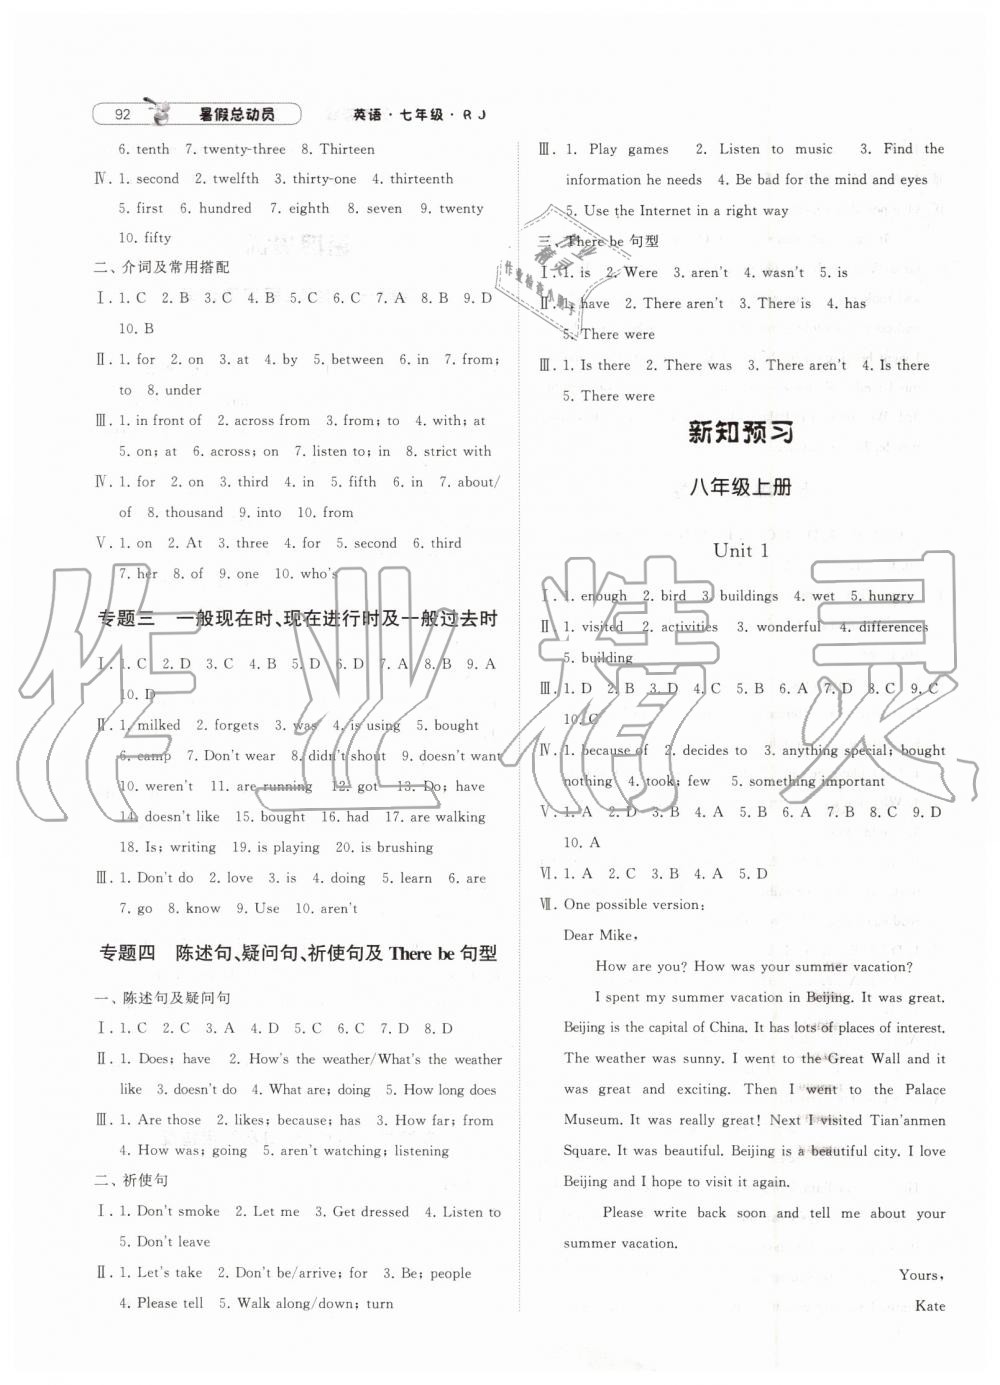 92 暑假总动员 英语·七年级·RJ
6. tenth 7. twenty-three 8. Thirteen
Ⅳ. 1. second 2. twelfth 3. thirty-one 4. thirteenth
5. first 6. hundred 7. eighth 8. seven 9. twenty
10. fifty
二、介词及常用搭配
Ⅰ. 1. C 2. B 3. B 4. C 5. B 6. C 7. A 8. B 9. D
10. B
Ⅱ. 1. for 2. on 3. at 4. by 5. between 6. in 7. from;
to 8. under
Ⅲ. 1. in front of 2. across from 3. from; to 4. with; at
5. on; at 6. across; on 7. listen to; in 8. strict with
Ⅳ. 1. for 2. on 3. third 4. in 5. fifth 6. in 7. about/
of 8. thousand 9. into 10. from
Ⅴ. 1. on 2. At 3. three 4. for 5. second 6. third
7. her 8. of 9. one 10. who's
专题三 一般现在时、现在进行时及一般过去时
Ⅰ. 1. C 2. D 3. C 4. B 5. D 6. D 7. A 8. B 9. A
10. D
Ⅱ. 1. milked 2. forgets 3. was 4. is using 5. bought
6. camp 7. Don't wear 8. didn't shout 9. doesn't want
10. weren't 11. are running 12. got 13. Do; have
14. doesn't like 15. bought 16. had 17. are walking
18. Is; writing 19. is playing 20. is brushing
Ⅲ. 1. Don't do 2. love 3. is 4. doing 5. learn 6. are
7. go 8. know 9. Use 10. aren't
专题四 陈述句、疑问句、祈使句及 There be 句型
一、陈述句及疑问句
Ⅰ. 1. C 2. C 3. A 4. D 5. C 6. C 7. D 8. D
Ⅱ. 1. Does; have 2. How's the weather/What's the weather
like 3. doesn't do 4. What are; doing 5. How long does
Ⅲ. 1. Are those 2. likes; because; has 3. How far; from
4. How was; going 5. aren't watching; listening
二、祈使句
Ⅰ. 1. Don't smoke 2. Let me 3. Get dressed 4. Listen to
5. Don't leave
Ⅱ. 1. Let's take 2. Don't be/arrive; for 3. Be; people
4. Please tell 5. Walk along/down; turn
Ⅲ. 1. Play games 2. Listen to music 3. Find the
information he needs 4. Be bad for the mind and eyes
5. Use the Internet in a right way
三、There be 句型
Ⅰ. 1. is 2. Were 3. aren't 4. wasn't 5. is
Ⅱ. 1. have 2. There aren't 3. There is 4. has
5. There were
Ⅲ. 1. Is there 2. There was 3. There aren't 4. Is there
5. There were
新知预习
八年级上册
Unit 1
Ⅰ. 1. enough 2. bird 3. buildings 4. wet 5. hungry
Ⅱ. 1. visited 2. activities 3. wonderful 4. differences
5. building
Ⅲ. 1. D 2. B 3. D 4. C 5. B 6. A 7. D 8. C 9. C
10. C
Ⅳ. 1. because of 2. decides to 3. anything special; bought
nothing 4. took; few 5. something important
Ⅴ. 1. A 2. D 3. B 4. A 5. B 6. A 7. B 8. C 9. D
10. A
Ⅵ. 1. A 2. C 3. B 4. A 5. D
Ⅶ. One possible version:
Dear Mike,
How are you? How was your summer vacation?
I spent my summer vacation in Beijing. It was great.
Beijing is the capital of China. It has lots of places of interest.
The weather was sunny. I went to the Great Wall and it
was great and exciting. Then I went to the Palace
Museum. It was really great! Next I visited Tian'anmen
Square. It was beautiful. Beijing is a beautiful city. I love
Beijing and I hope to visit it again.
Please write back soon and tell me about your
summer vacation.
Yours,
Kate
作业精灵
作业检查小助手
作业精灵